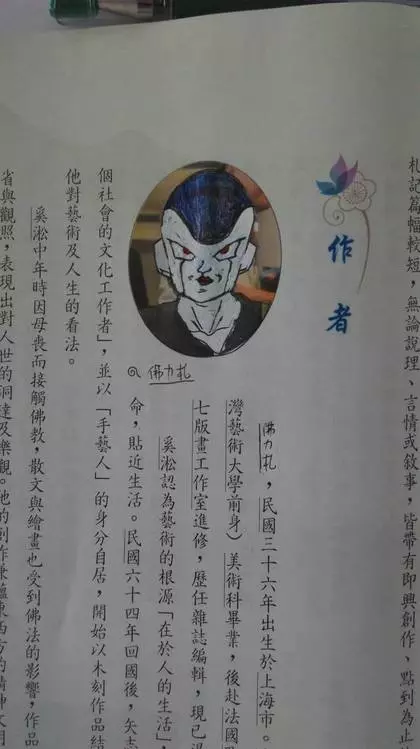 札記篇幅較短，無論說理、言情或敘事，皆帶有即興創作、點到為止
作者
佛力札，民國三十六年出生於上海市。
灣藝術大學前身）美術科畢業，後赴法國
七版畫工作室進修，歷任雜誌編輯，現已
奚淞認為藝術的根源「在於人的生活」，
佛力札
命，貼近生活。民國六十四年回國後，矢志
個社會的文化工作者」，並以「手藝人」的身分自居，開始以木刻作品結
他對藝術及人生的看法。
奚淞中年時因母喪而接觸佛教，散文與繪畫也受到佛法的影響，作品
省與觀照，表現出對人世的洞達及樂觀。他的創作兼蘊東西方的精神文明